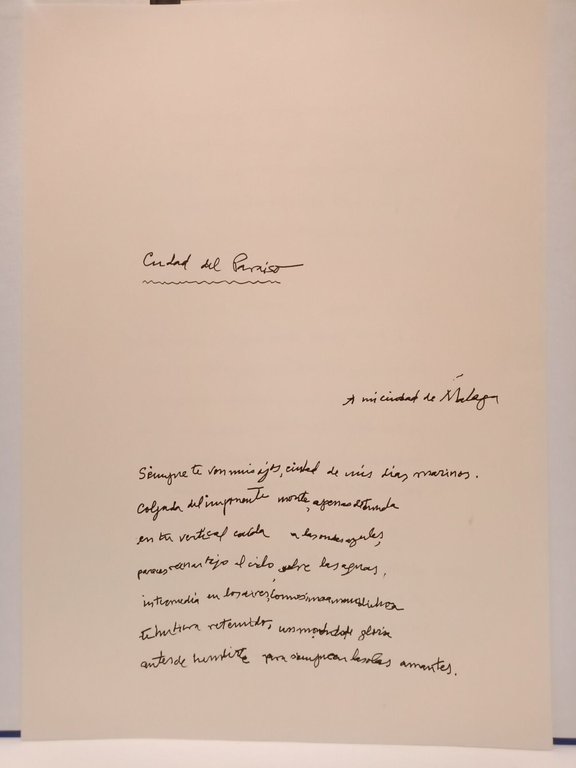 Ciudad del Paraíso
A mi ciudad de Málaga
Siempre te ven mis ojos, ciudad de mis días marinos.
Colgada del imponente monte, apenas detenida
en tu vertical caída a las ondas azules,
pareces reinar bajo el cielo, sobre las aguas,
intermedia en los aires, como si una mano dichosa
te hubiera retenido, un momento de gloria
antes de hundirte para siempre en las olas amantes.